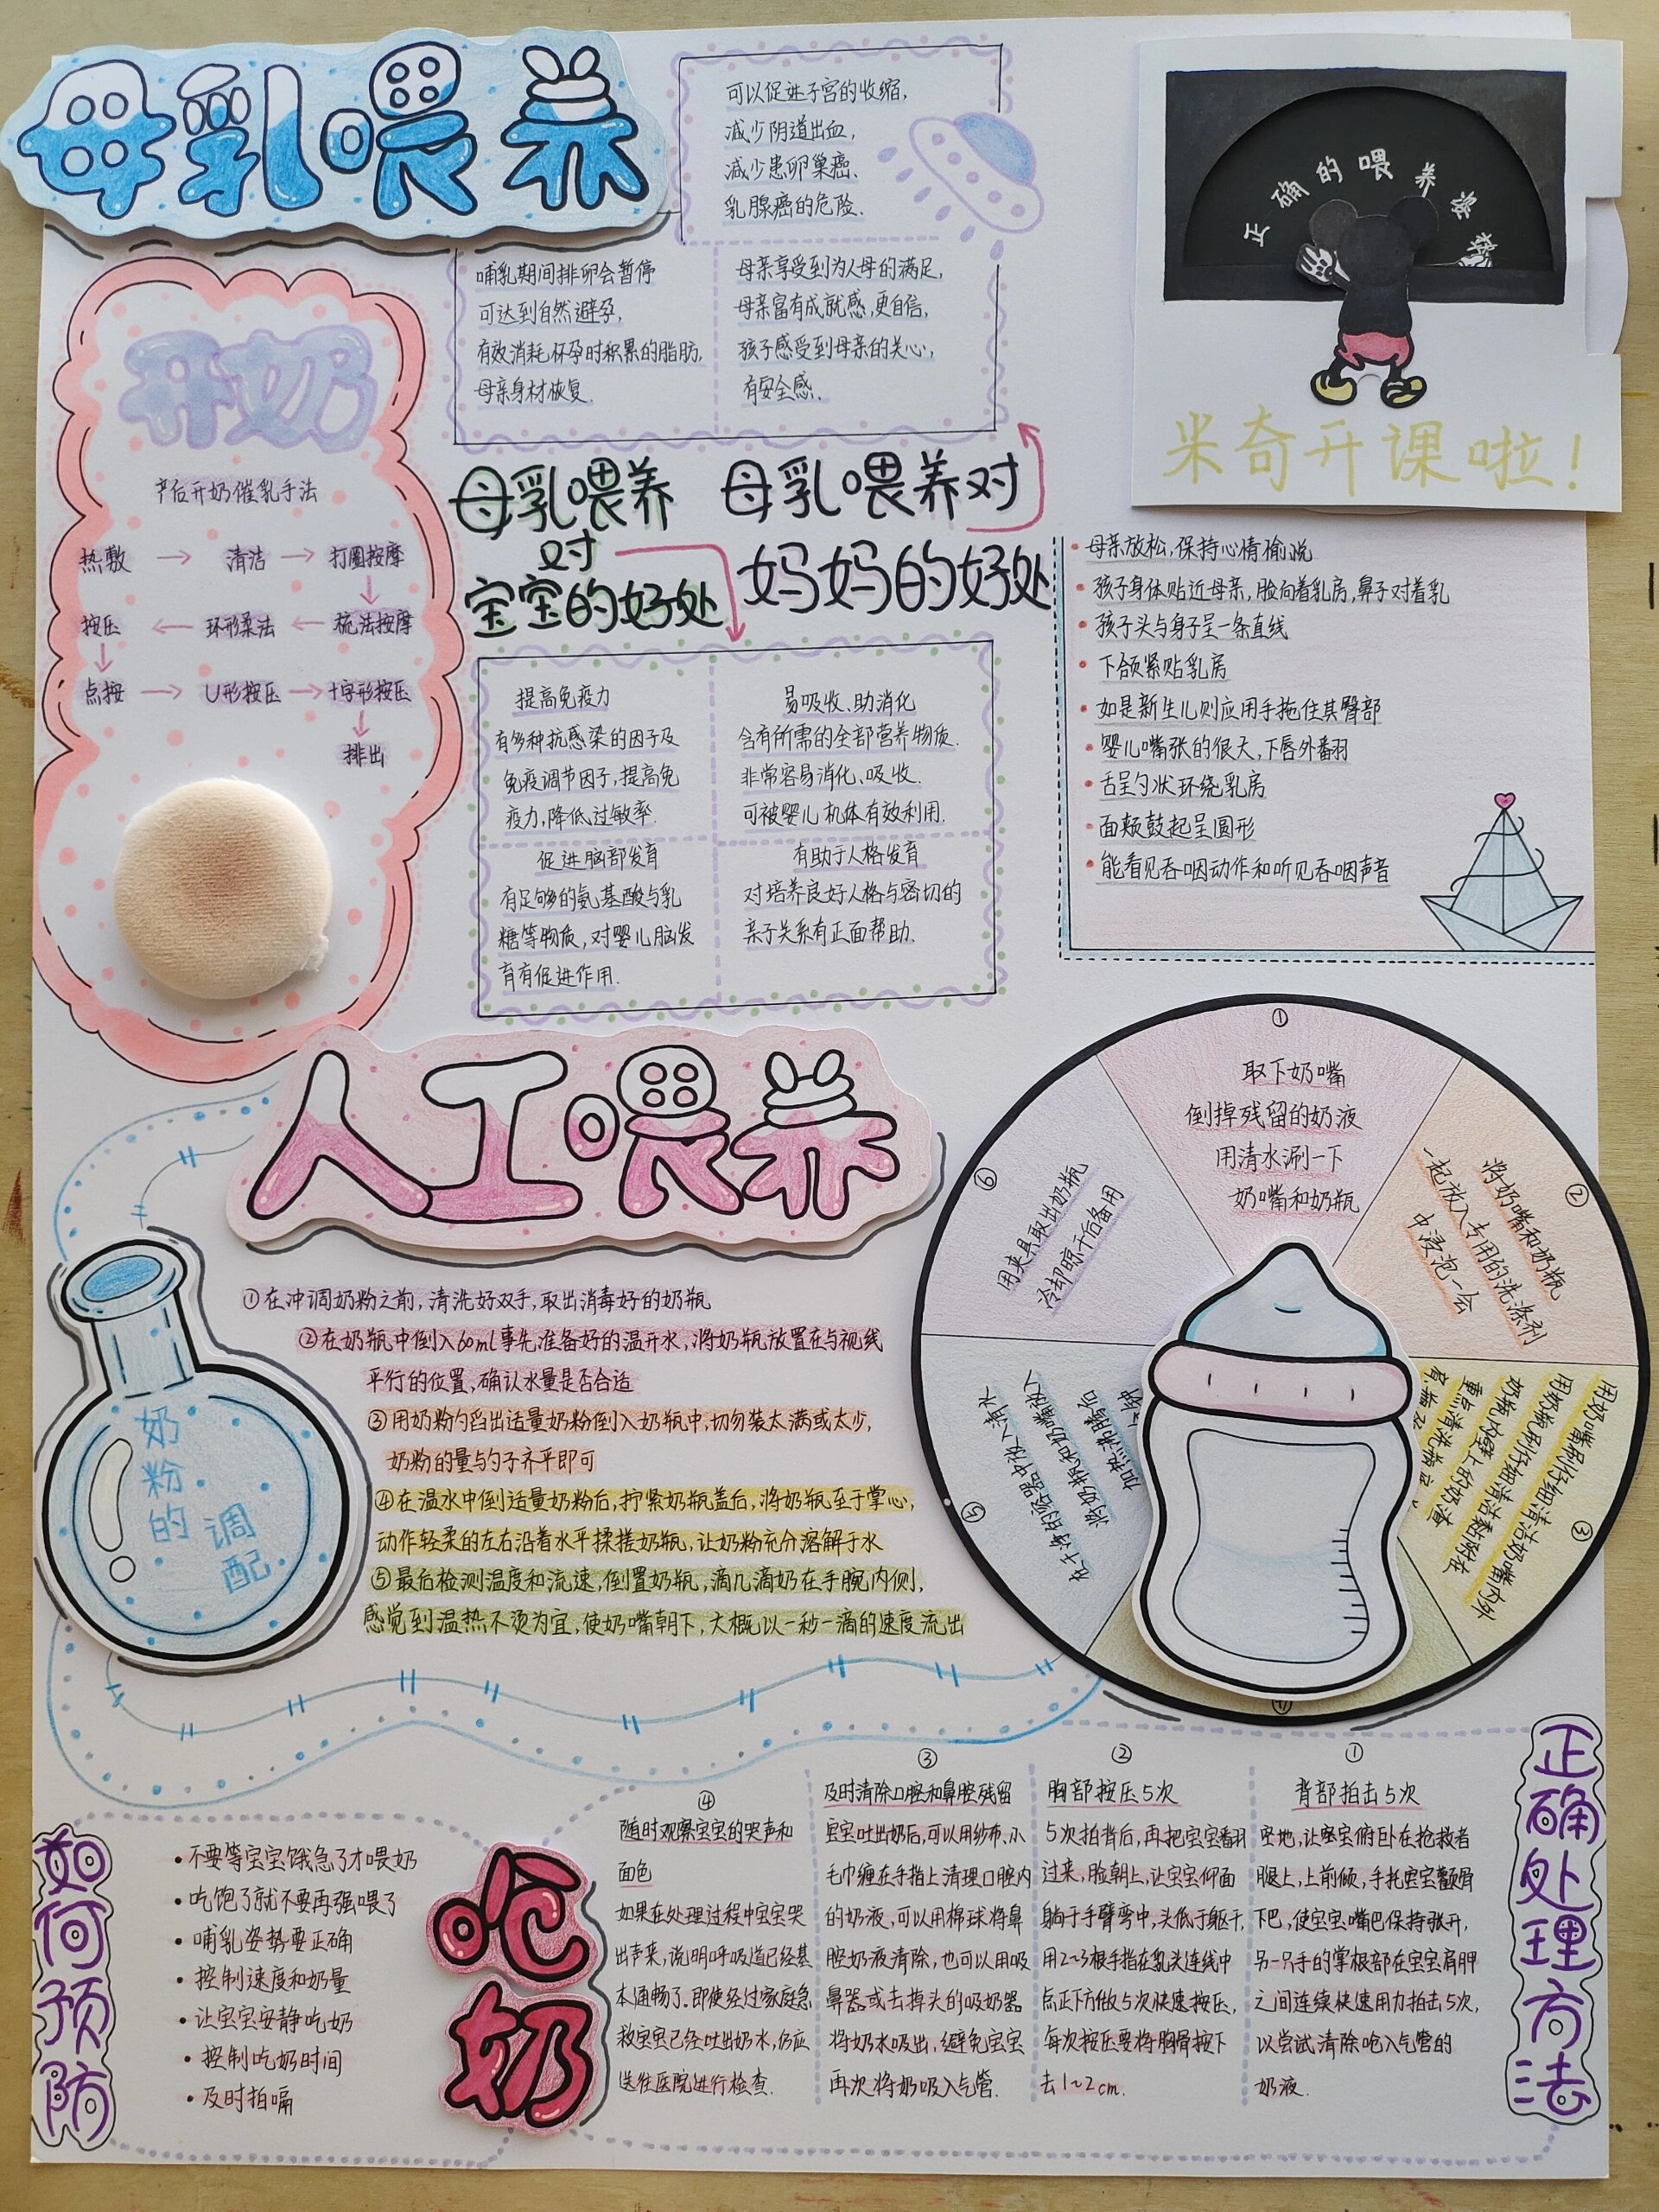 母乳喂养
可以促进子宫的收缩，
减少阴道出血，
减少患卵巢癌、
乳腺癌的危险.
哺乳期间排卵会暂停
可达到自然避孕，
有效消耗怀孕时积累的脂肪，
母亲身材恢复.
母亲享受到为人母的满足，
母亲富有成就感，更自信，
孩子感受到母亲的关心，
有安全感.
正确的喂养姿势
米奇开课啦！
开奶
产后开奶催乳手法
热敷 → 清洁 → 打圈按摩
按压 ← 环形柔法 ← 梳法按摩
点按 → U形按压 → 十字形按压
排出
母乳喂养
对
宝宝的好处
母乳喂养对
妈妈的好处
提高免疫力
有多种抗感染的因子及
免疫调节因子，提高免
疫力，降低过敏率.
易吸收、助消化
含有所需的全部营养物质.
非常容易消化、吸收.
可被婴儿机体有效利用.
促进脑部发育
有足够的氨基酸与乳
糖等物质，对婴儿脑发
育有促进作用.
有助于人格发育
对培养良好人格与密切的
亲子关系有正面帮助.
• 母亲放松，保持心情愉悦
• 孩子身体贴近母亲，脸向着乳房，鼻子对着乳
• 孩子头与身子呈一条直线
• 下颌紧贴乳房
• 如是新生儿则应用手拖住其臀部
• 婴儿嘴张的很大，下唇外翻
• 舌呈勺状环绕乳房
• 面颊鼓起呈圆形
• 能看见吞咽动作和听见吞咽声音
人工喂养
奶粉的
调配
①在冲调奶粉之前，清洗好双手，取出消毒好的奶瓶
②在奶瓶中倒入60ml事先准备好的温开水，将奶瓶放置在与视线
平行的位置，确认水量是否合适
③用奶粉勺舀出适量奶粉倒入奶瓶中，切勿装太满或太少，
奶粉的量与勺子齐平即可
④在温水中倒适量奶粉后，拧紧奶瓶盖后，将奶瓶至于掌心，
动作轻柔的左右沿着水平揉搓奶瓶，让奶粉充分溶解于水
⑤最后检测温度和流速，倒置奶瓶，滴几滴奶在手腕内侧，
感觉到温热不烫为宜，使奶嘴朝下，大概以一秒一滴的速度流出
①
取下奶嘴
倒掉残留的奶液
用清水涮一下
奶嘴和奶瓶
②
将奶嘴和奶瓶
一起放入专用的洗涤剂
中浸泡一会
③
用奶嘴刷仔细清洁奶嘴内外
用奶瓶刷仔细清洁黏附在
奶瓶内壁上的奶渣
重点清洗
④
⑤
在干净的容器中放入清水
将奶瓶和奶嘴放入
加热沸腾后
⑥
用夹具取出奶瓶
冷却晾干后备用
如何预防
• 不要等宝宝饿急了才喂奶
• 吃饱了就不要再强喂了
• 哺乳姿势要正确
• 控制速度和奶量
• 让宝宝安静吃奶
• 控制吃奶时间
• 及时拍嗝
呛奶
正确处理方法
①
背部拍击5次
坚地，让宝宝俯卧在抢救者
腿上，上前倾，手托宝宝颧骨
下巴，使宝宝嘴巴保持张开，
另一只手的掌根部在宝宝肩胛
之间连续快速用力拍击5次，
以尝试清除呛入气管的
奶液.
②
胸部按压5次
5次拍背后，再把宝宝翻
过来，脸朝上，让宝宝仰面
躺于手臂弯中，头低于躯干，
用2~3根手指在乳头连线中
点正下方做5次快速按压，
每次按压要将胸骨按下
去1~2cm.
③
及时清除口腔和鼻腔残留
宝宝吐出奶后，可以用纱布、小
毛巾缠在手指上清理口腔内
的奶液，可以用棉球将鼻
腔奶液清除，也可以用吸
鼻器或去掉头的吸奶器
将奶水吸出，避免宝宝
再次将奶吸入气管.
④
随时观察宝宝的哭声和
面色
如果在处理过程中宝宝哭
出声来，说明呼吸道已经基
本通畅了.即使经过家庭急
救宝宝已经吐出奶水，仍应
送往医院进行检查.